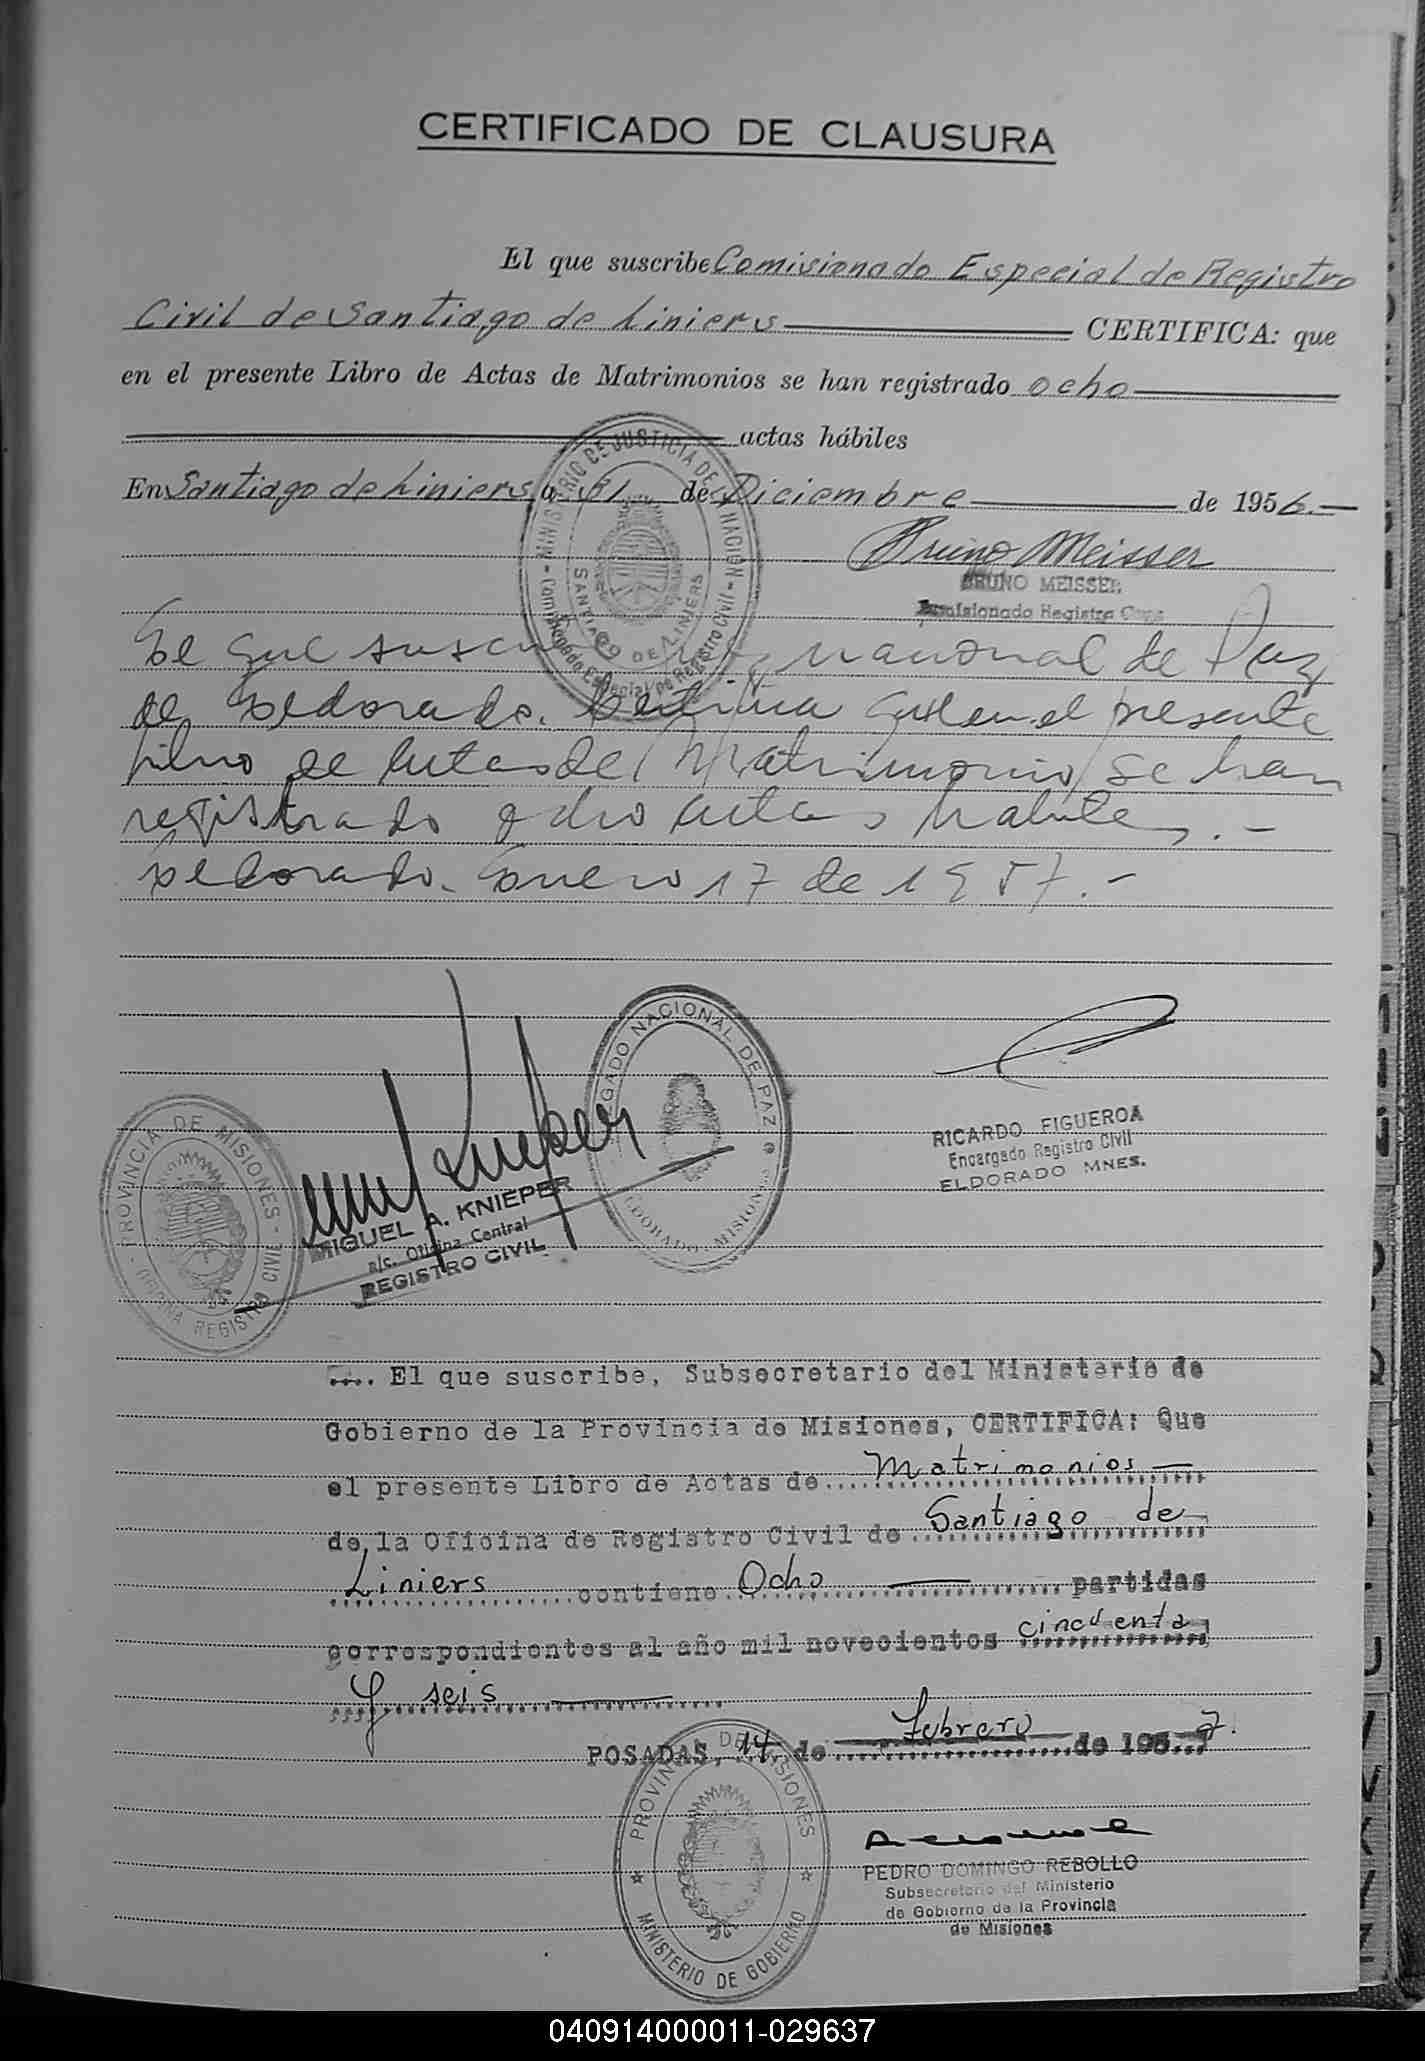 CERTIFICADO DE CLAUSURA
El que suscribe Comisionado Especial de Registro
Civil de Santiago de Liniers CERTIFICA: que
en el presente Libro de Actas de Matrimonios se han registrado ocho
actas hábiles
En Santiago de Liniers a 31 de Diciembre de 1956.-
MINISTERIO DE JUSTICIA DE LA NACION - Comisionado Especial de Registro Civil -
SANTIAGO DE LINIERS
Bruno Meisser
BRUNO MEISSER
Comisionado Registro
El que nacional de Paz
de Eldorado. Certifica que en el presente
libro de Actas de Matrimonio se han
registrado ocho actas habiles.-
Eldorado. Enero 17 de 1957.-
JUZGADO NACIONAL DE PAZ
ELDORADO - MISIONES
RICARDO FIGUEROA
Encargado Registro Civil
ELDORADO MNES.
PROVINCIA DE MISIONES -
OFICINA REGISTRO CIVIL
Knieper
MIGUEL A. KNIEPER
a/c. Oficina Central
REGISTRO CIVIL
.... El que suscribe, Subsecretario del Ministerio de
Gobierno de la Provincia de Misiones, CERTIFICA: Que
el presente Libro de Actas de Matrimonios
de la Oficina de Registro Civil de Santiago de
Liniers contiene Ocho partidas
correspondientes al año mil novecientos cincuenta
y seis
POSADAS, 14 de Febrero de 195 7.
PROVINCIA DE MISIONES
MINISTERIO DE GOBIERNO
PEDRO DOMINGO REBOLLO
Subsecretario del Ministerio
de Gobierno de la Provincia
de Misiones
040914000011-029637